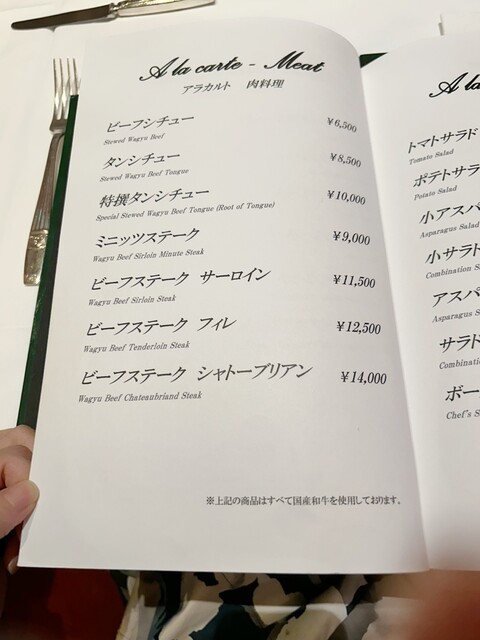 A la carte - Meat
アラカルト 肉料理
ビーフシチュー ¥6,500
Stewed Wagyu Beef
タンシチュー ¥8,500
Stewed Wagyu Beef Tongue
特撰タンシチュー ¥10,000
Special Stewed Wagyu Beef Tongue (Root of Tongue)
ミニッツステーク ¥9,000
Wagyu Beef Sirloin Minute Steak
ビーフステーク サーロイン ¥11,500
Wagyu Beef Sirloin Steak
ビーフステーク フィレ ¥12,500
Wagyu Beef Tenderloin Steak
ビーフステーク シャトーブリアン ¥14,000
Wagyu Beef Chateaubriand Steak
※上記の商品はすべて国産和牛を使用しております。
A la
トマトサラド
Tomato Salad
ポテトサラ
Potato Salad
小アスパ
Asparagus Salad
小サラト
Combination S
アスパ
Asparagus S
サラド
Combination
ボー
Chef's S